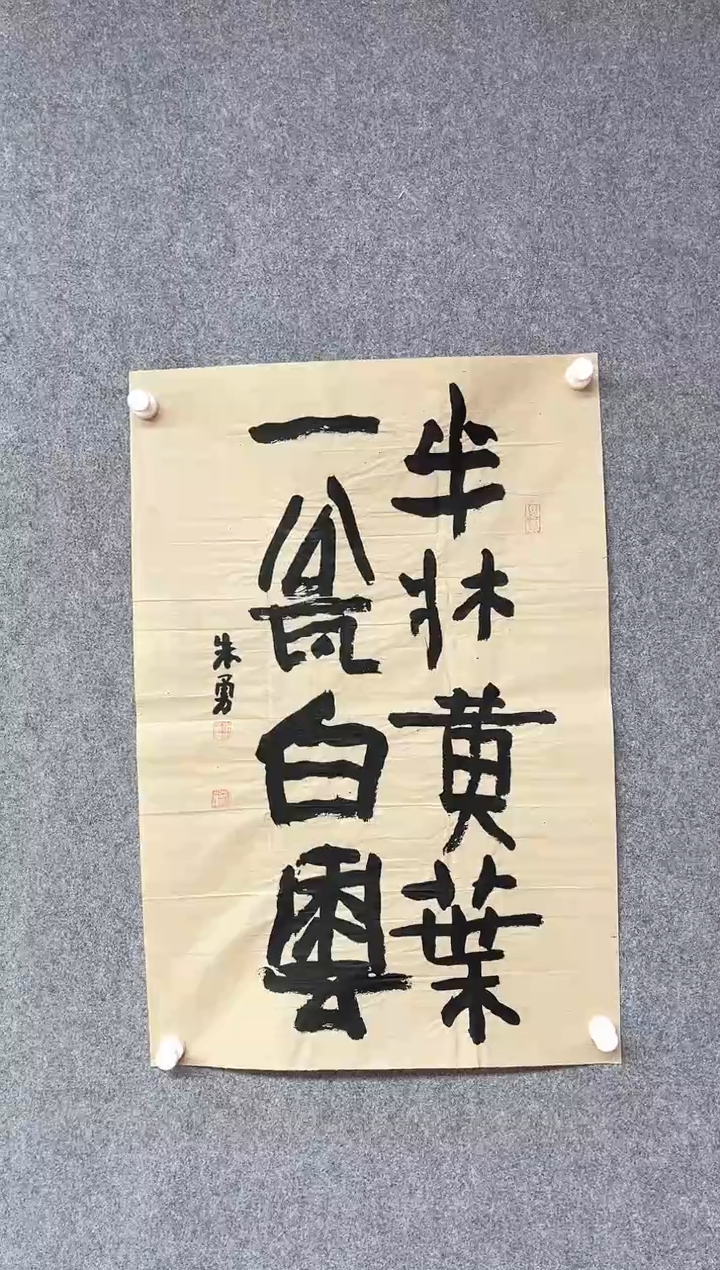 半牀黄葉
一瓮白雲
朱勇